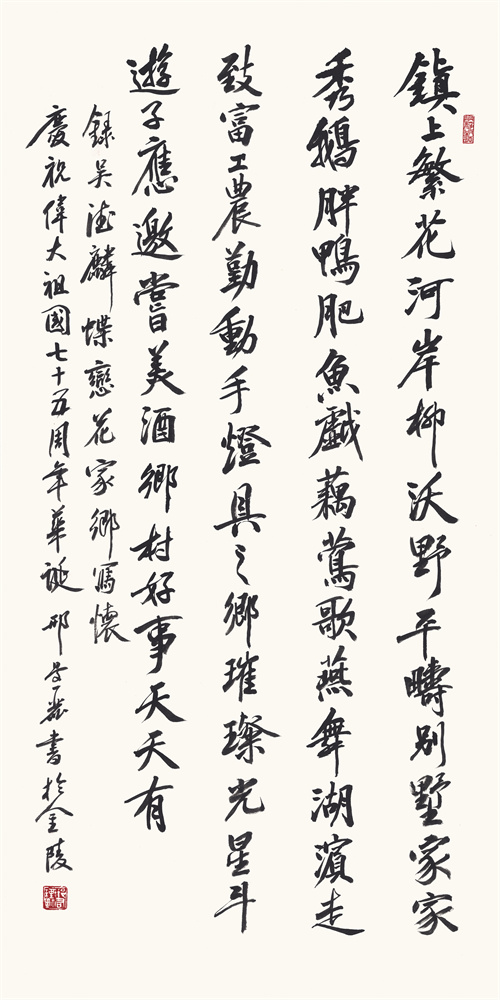 鎮上繁花河岸柳沃野平疇別墅家家
秀鵝胖鴨肥魚戲藕鶯歌燕舞湖濱走
致富工農勤動手燈具之鄉璀璨光星斗
遊子應邀嘗美酒鄉村好事天天有
錄吴德麟蝶戀花家鄉寫懷
慶祝偉大祖國七十五周年華誕邱書於金陵